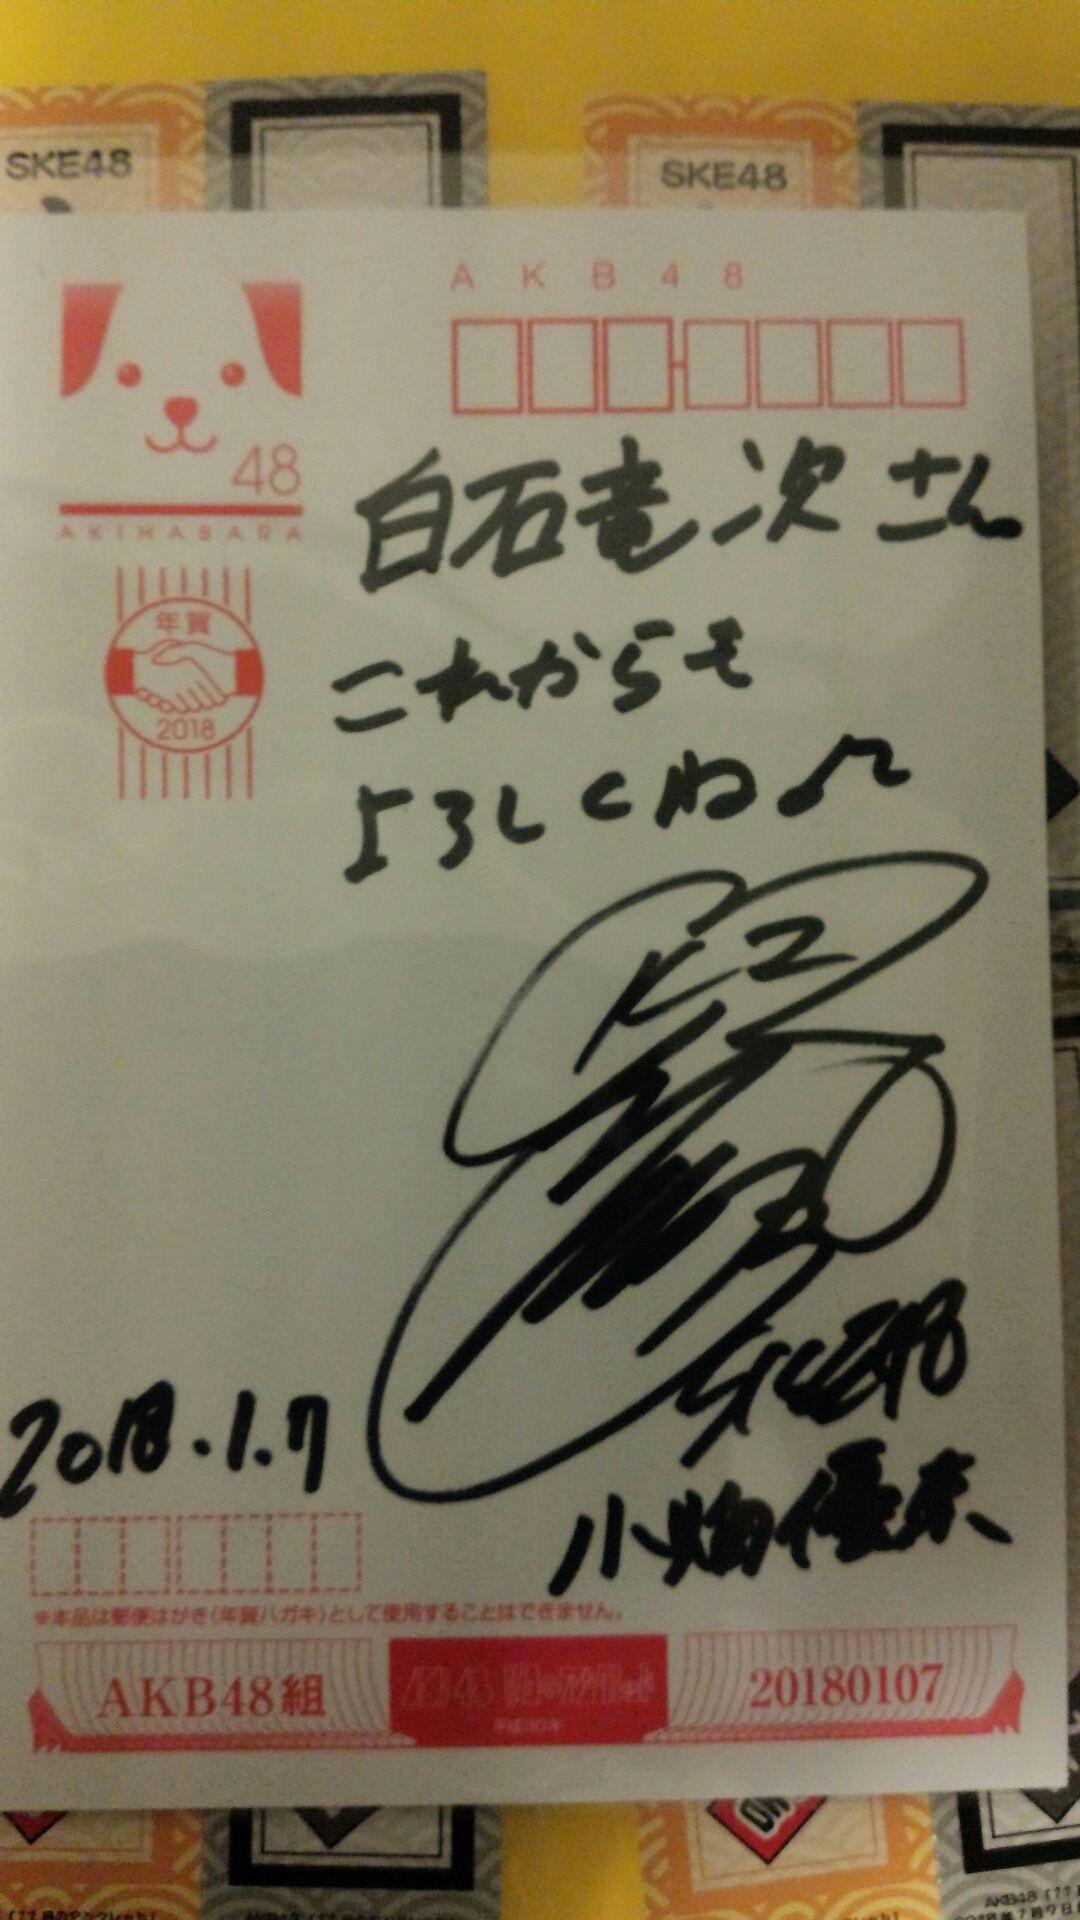 SKE48
SKE48
AKB48
48
AKIHABARA
年賀
2018
白石竜次さん
これからも
よろしくね♪
SKE48
小畑優奈
2018.1.7
※本品は郵便はがき(年賀ハガキ)として使用することはできません。
AKB48組
平成30年
20180107